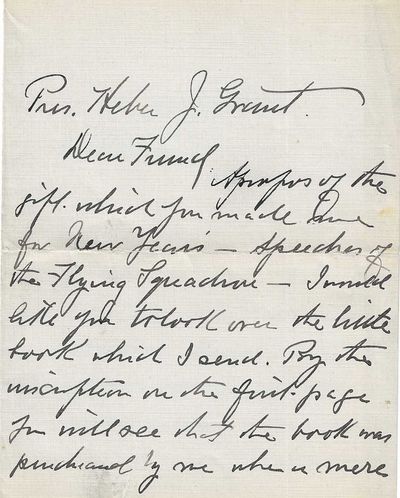 Pres. Heber J. Grant.
Dear Friend
Apropos of the
gift which you made me
for New Years — Speeches of
the Flying Squadron — I would
like you to look over the little
book which I send. By the
inscription on the first page
you will see that the book was
purchased by me when a mere